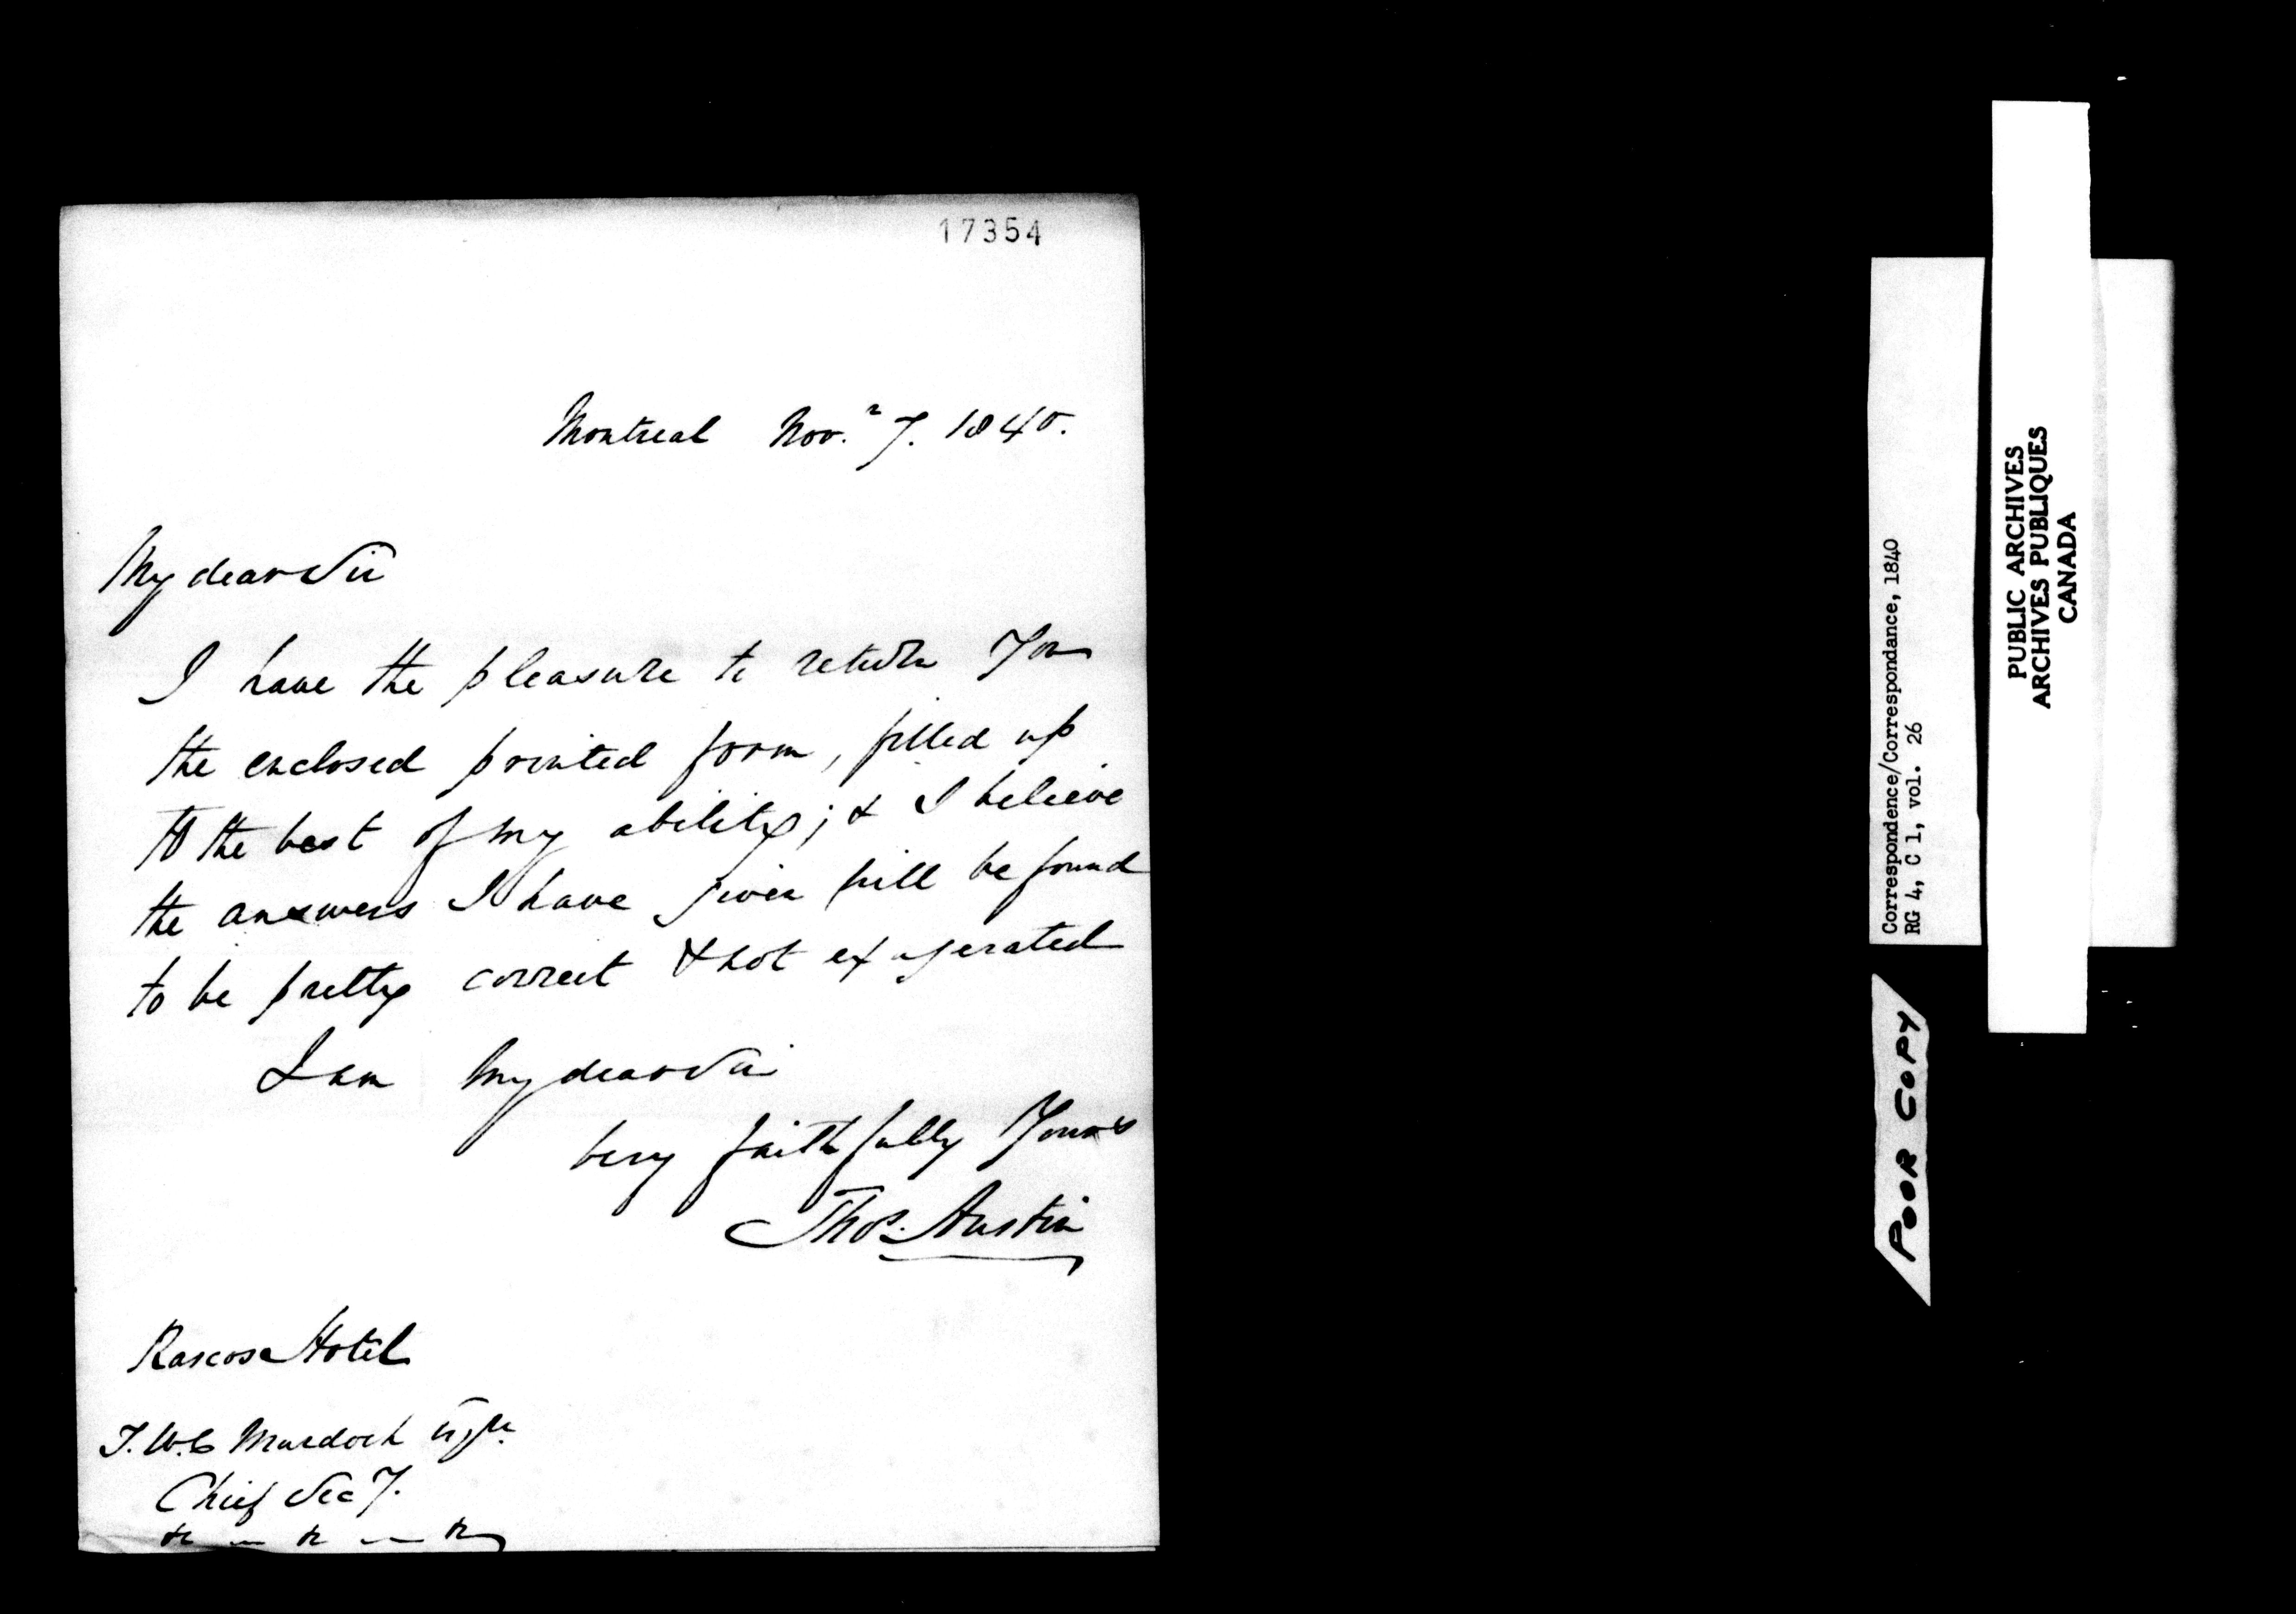 17354
Montreal Nov.r 7. 1840.
My dear Sir
I have the pleasure to return You
the enclosed printed form, filled up
to the best of my ability; & I believe
the answers I have given will be found
to be pretty correct & not exagerated
I am My dear Sir
very faithfully Yours
Thos. Austin
Rascos Hotel
T. W. C Murdoch Esqre
Chief Secy.
&c — &c — &c
Correspondence/Correspondance, 1840
RG 4, C 1, vol. 26
PUBLIC ARCHIVES
ARCHIVES PUBLIQUES
CANADA
POOR COPY